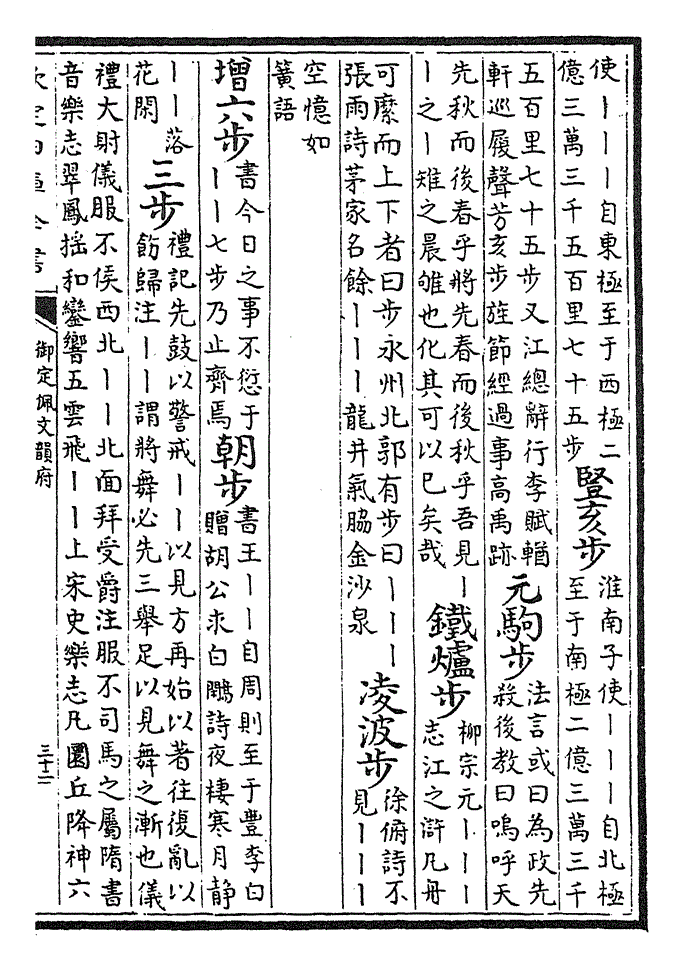 使丨丨丨自東極至于西極二
億三萬三千五百里七十五步
豎亥步
淮南子使丨丨丨自北極
至于南極二億三萬三千
五百里七十五步又江總辭行李賦輶
軒巡履聲芳亥步旌節經過事高禹跡
元駒步
法言或曰為政先
殺後教曰嗚呼天
先秋而後春乎將先春而後秋乎吾見丨
丨之丨雉之晨雊也化其可以巳矣哉
鐵爐步
柳宗元丨丨丨
志江之滸凡舟
可縻而上下者曰步永州北郭有步曰丨丨丨
張雨詩茅家名餘丨丨丨龍井氣脇金沙泉
凌波步
徐俯詩不
見丨丨丨
空憶如
簧語
增六步
書今日之事不愆于
丨丨七步乃止齊焉
朝步
書王丨丨自周則至于豐李白
贈胡公求白鷴詩夜棲寒月静
丨丨落
花閑
三步
禮記先鼓以警戒丨丨以見方再始以著往復亂以
飭歸注丨丨謂將舞必先三舉足以見舞之漸也儀
禮大射儀服不俟西北丨丨北面拜受爵注服不司馬之屬隋書
音樂志翠鳳揺和鑾響五雲飛丨丨上宋史樂志凡圜丘降神六
欽定四庫全書
御定佩文韻府
三十二